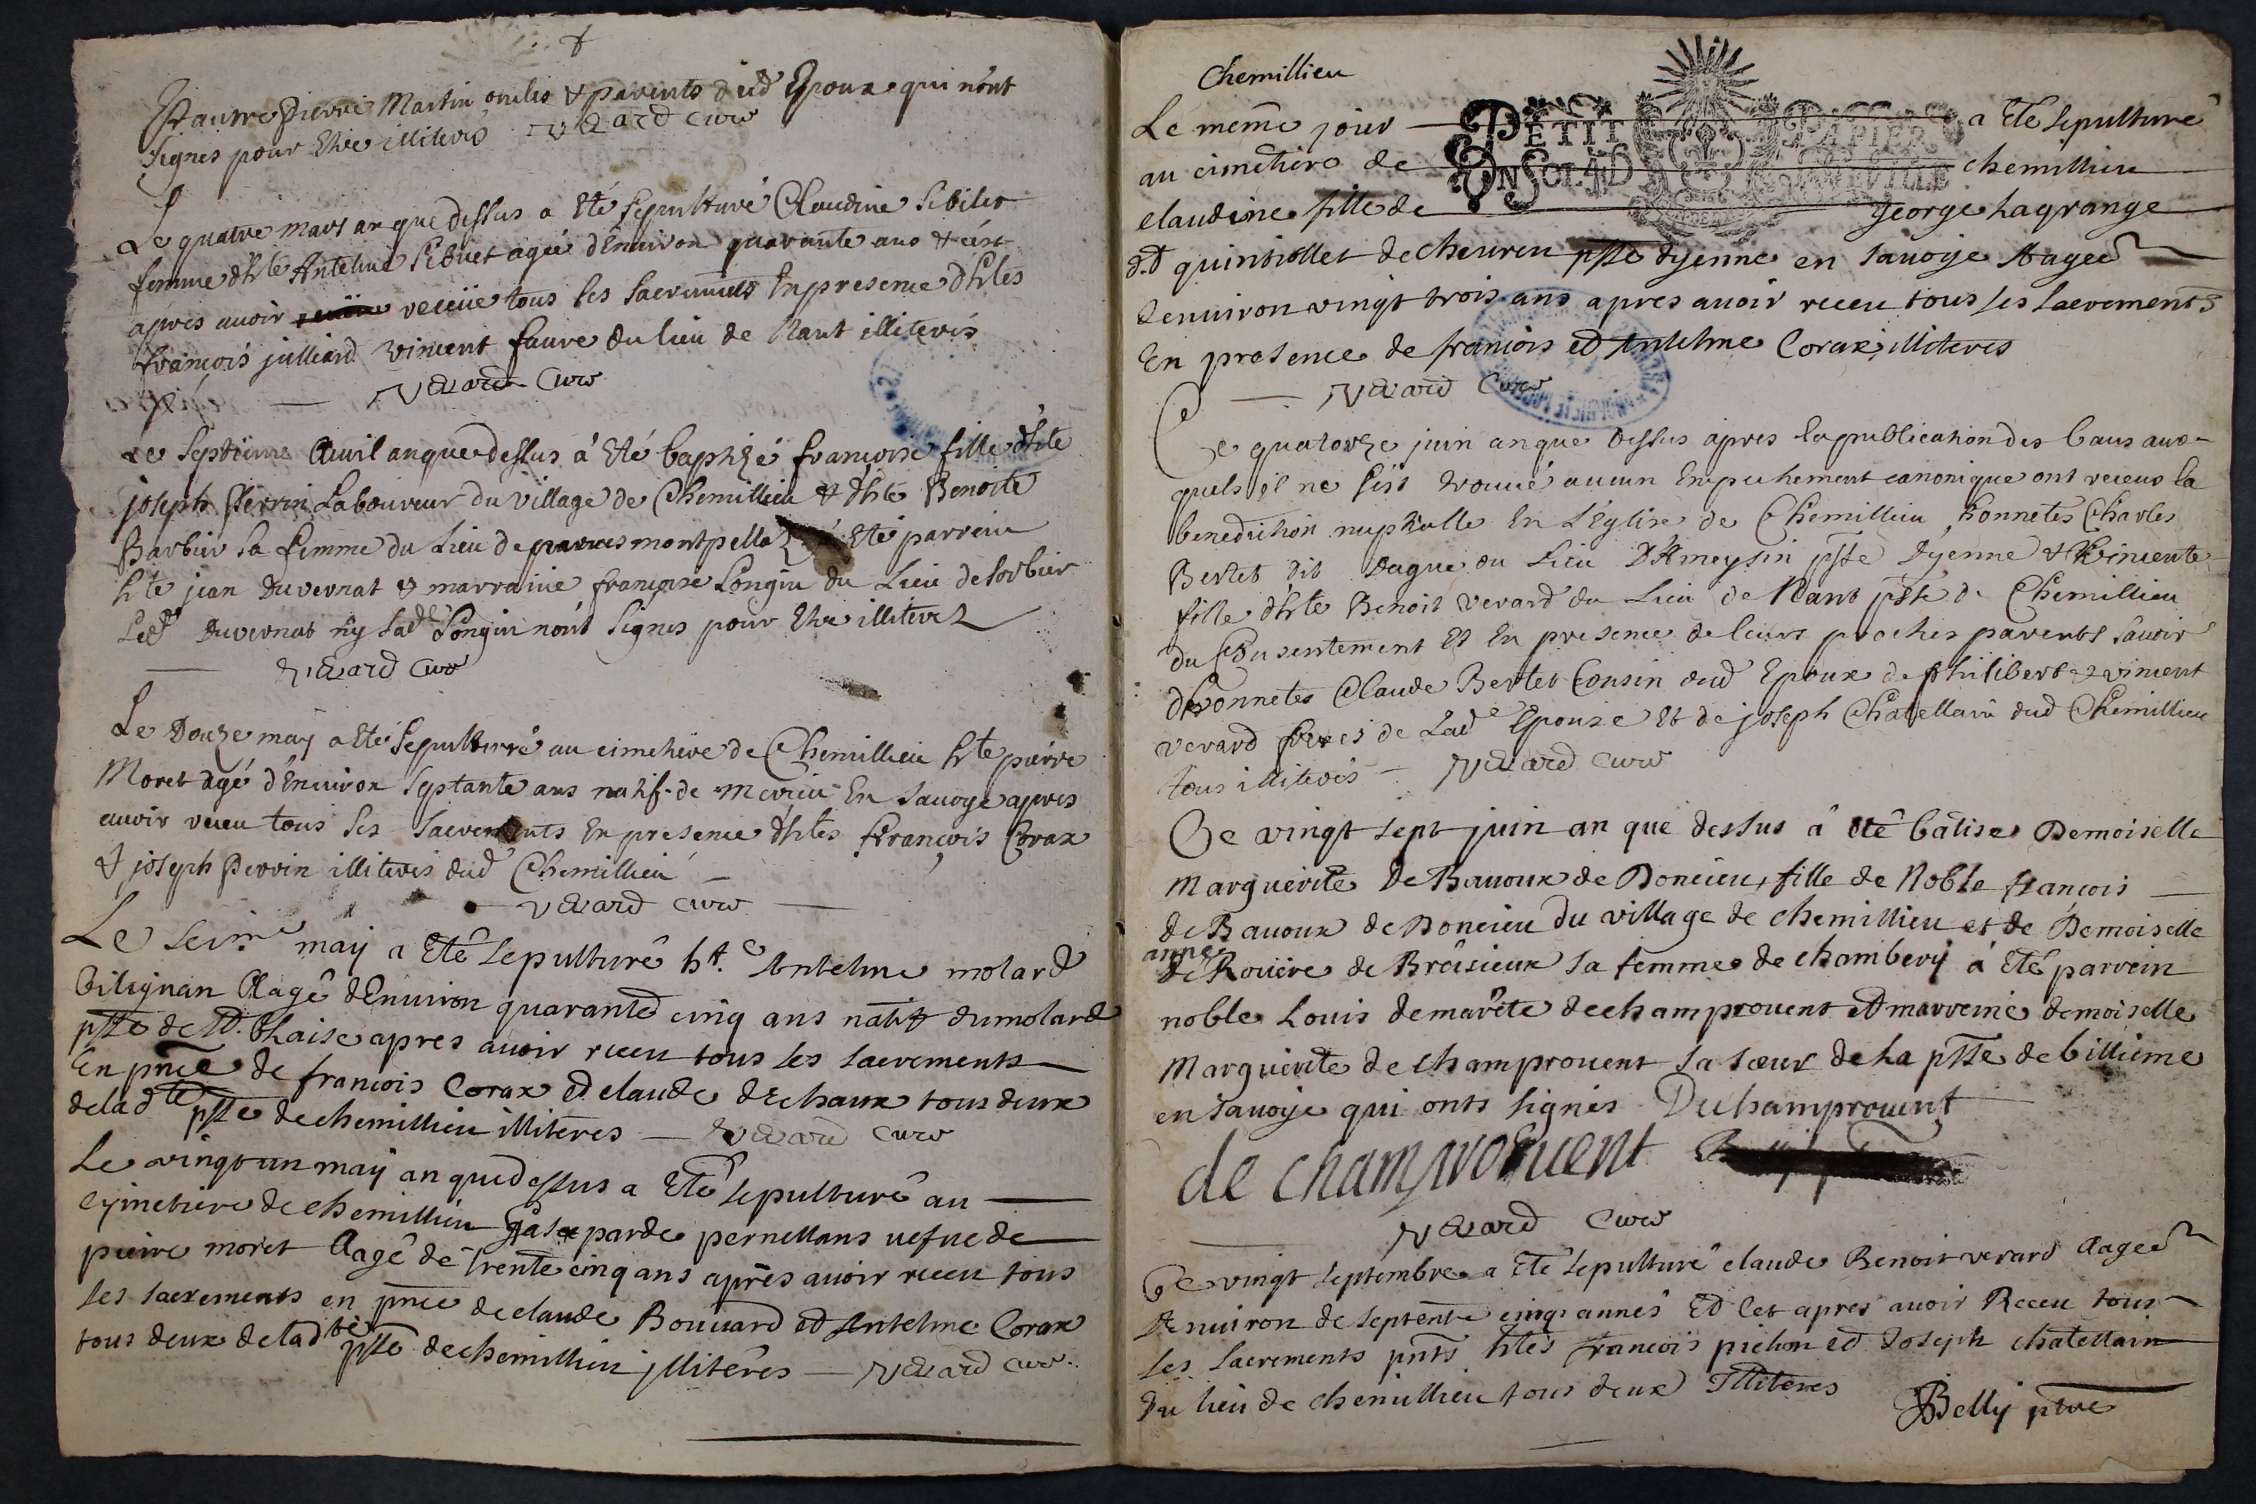 & autre Pierre Martin oncles & parents dud Epoux qui n'ont
signes pour Etre illiterés Verard curé
Le quatre mars an que dessus a Eté sepulturé Claudine Sibilet
femme d'hte Antelme Sibuet agée d'Environ quarante ans & c'est
apres avoir receüe tous les sacrements En presence d'htes
françois julliard vincent faure du lieu de Nant illiterés
Verard Curé
Le septieme Avril an que dessus a Eté baptizé françoise fille d'hte
joseph Perrin Laboureur du village de Chemillieu & d'hte Benoite
Barbier sa femme du Lieu de montpella Eté parrein
hte jean Duvernat & marraine françoise Longin du Lieu de Sorbier
Led Duvernat ny lade Longin n'ont signes pour Etre illiterez
Verard Curé
Le Douze may a Eté sepulturré au cimetiere de Chemillieu hte pierre
Moret agé d'Environ septante ans natif de merieu En savoye apres
avoir receu tous les sacrements En presence d'htes François Corax
& joseph Perrin illiterés dud Chemillieu
Verard curé
Le seizme may a Eté sepulturé ht.e Antelme molard
bilignan Aagé d'Environ quarante et cinq ans natif du molard
psse de St. Blaise apres avoir receu tous les sacrements
En pnce de francois Corax et claude dechaux tous deux
de ladte psse de chemillieu illiteres Verard curé
Le vingt un may an que dessus a Eté sepulturé au
cymetiere de chemillieu Gasparde pernellans vefue de
pierre moret Aagé de trente cinq ans après avoir receu tous
les sacrements en pnce de claude Bouvard et Antelme Corax
tous deux de ladte psse de chemillieu jlliteres Verard curé
Chemillieu
PETIT PAPIER
UN SOL 4 D
Le même jour a Eté sepulturé
au cimetiere de chemillieu
claudine fille de george Lagrange
d.t quintiollet de cheuru psse dyenne en savoye Aagee
denuiron vingt trois ans apres auoir receu tous les sacrements
En presence de francois et Antelme Corax illiteres
Verard Curé
Ce quatorze juin an que dessus apres la publication des bans aux
quels il ne s'est trouué aucun Empechement canonique ont receus la
benediction nuptialle En L'Eglise de Chemillieu honnetes Charles
Bertet dit Dague du Lieu D'Ameysin psse Dyenne & Vincente
fille d'hte Benoit verard du Lieu de Nant psse de Chemillieu
du Consentement Et En presence de leurs proches parents sauoir
d'honnetes Claude Bertet Cousin dud Epoux de philibert & vincent
verard freres de Lade Epouse Et de joseph Chatellain dud Chemillieu
tous illiterés Verard curé
Ce vingt sept juin an que dessus â eté bâtise Demoiselle
Marguerite De Bavoux de Doncieu, fille de Noble françois
de Bavoux de Doncieu du village de chemillieu et de Demoiselle
anne
de Rouere de Brésieux sa femme de chambery â Eté parrein
noble Louis demaréte de champrouent Et marreine demoiselle
Marguerite de champrouent sa sœur de La psse de billieme
en savoye qui onts signés Duchamprouent
de champrouent
Verard Curé
Ce vingt septembre a Eté sepulturé claude Benoit verard Aagee
d'enuiron de septente cinq années Et cet apres auoir Receu tous
les sacrements pnts htes francois pichon et Joseph chatellain
Du lieu de chemillieu tous deux Illiteres
Belly ptre